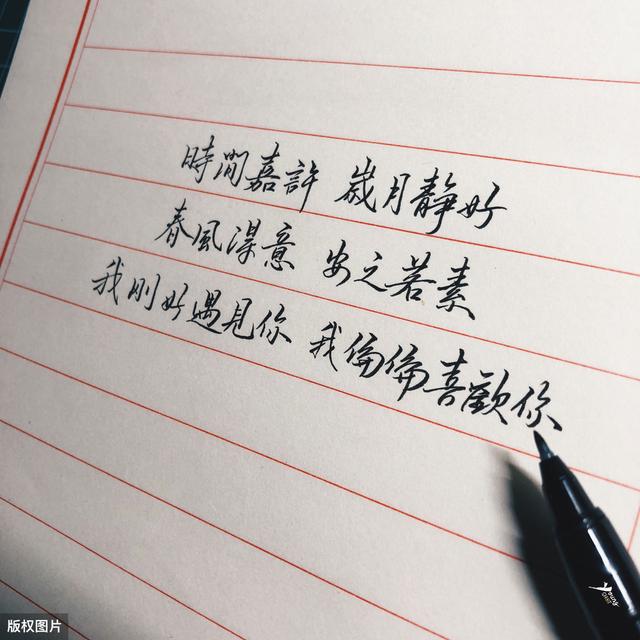 時間嘉許 歲月靜好
春風深意 安之若素
我刚好遇見你 我偏偏喜歡你
版权图片